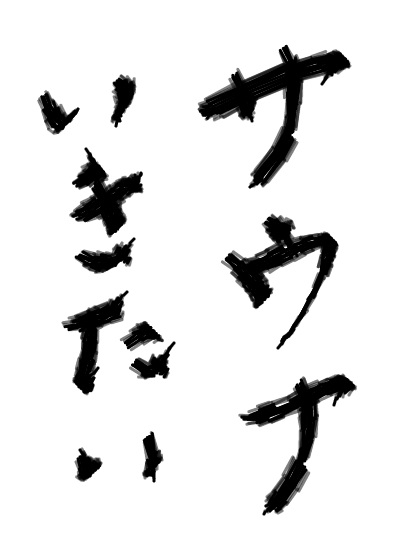 サウナ
いきたい